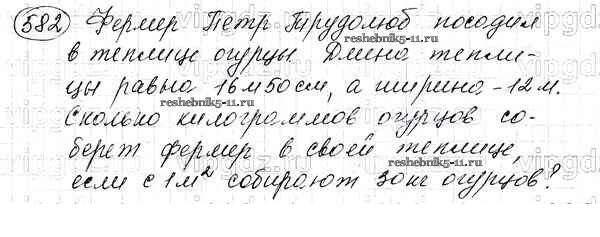 582 Фермер Петр Трудолюб посадил
в теплице огурцы. Длина тепли-
цы равна 16м50см, а ширина - 12м.
Сколько килограммов огурцов со-
берет фермер в своей теплице,
если с 1м² собирают 30 кг огурцов?
reshebnik5-11.ru
reshebnik5-11.ru
reshebnik5-11.ru